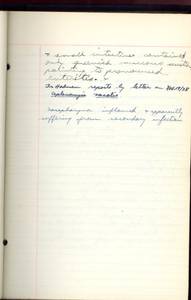 & small intestine contained
only greenish mucous
pointing to pronounced
enteritis.
Dr Holman reports by letter on Feb 19/28
nasopharynx inflamed & apparently
suffering from secondary infection